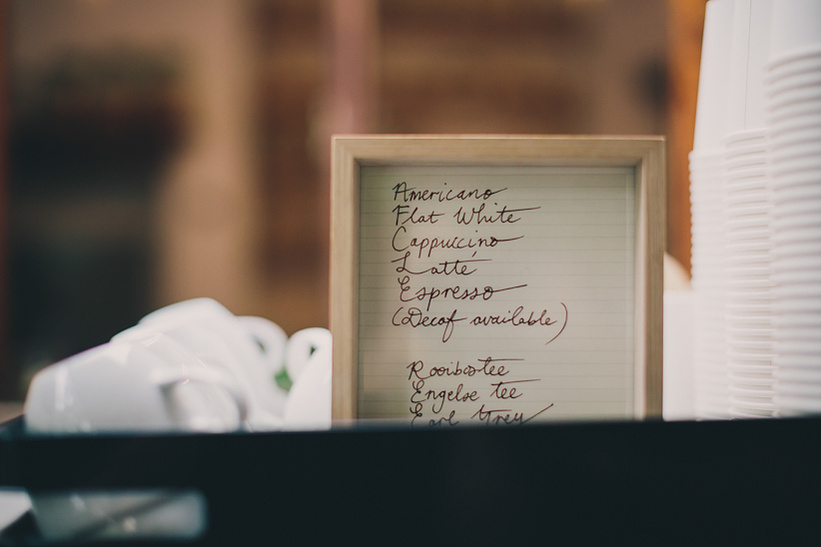 Americano
Flat White
Cappuccino
Latté
Espresso
(Decaf available)
Rooibostee
Engelse tee
Earl Grey